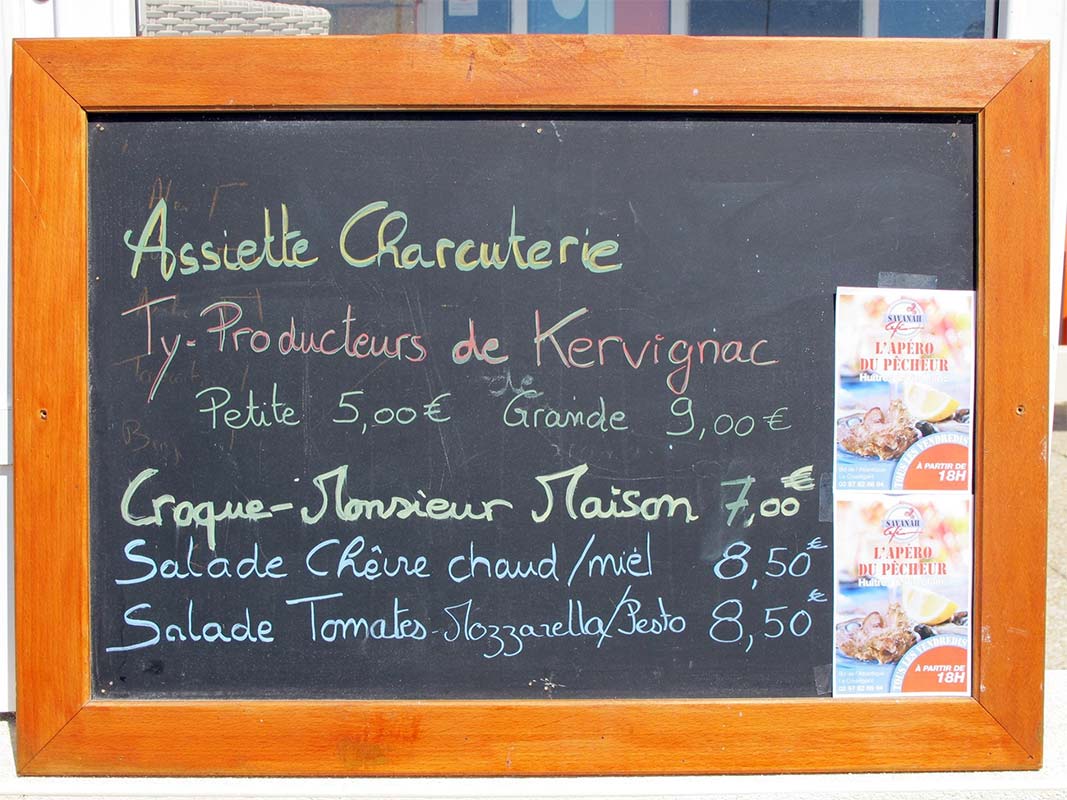 Assiette Charcuterie
Ty-Producteurs de Kervignac
Petite 5,00€ Grande 9,00€
Croque-Monsieur Maison 7,00€
Salade Chêvre chaud/miel 8,50€
Salade Tomates-Mozzarella/Pesto 8,50€
SAVANAH
Café
L'APÉRO
DU PÊCHEUR
TOUS LES VENDREDIS
À PARTIR DE
18H
SAVANAH
Café
L'APÉRO
DU PÊCHEUR
TOUS LES VENDREDIS
À PARTIR DE
18H